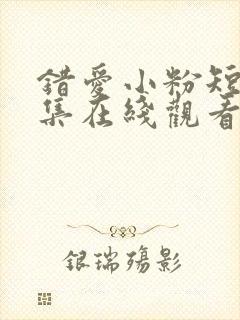 錯愛小粉短
集在綫觀看
銀瑞殤影